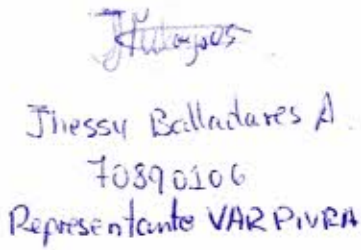 Jhessy Balladares A.
70890106
Representante VAR PIURA